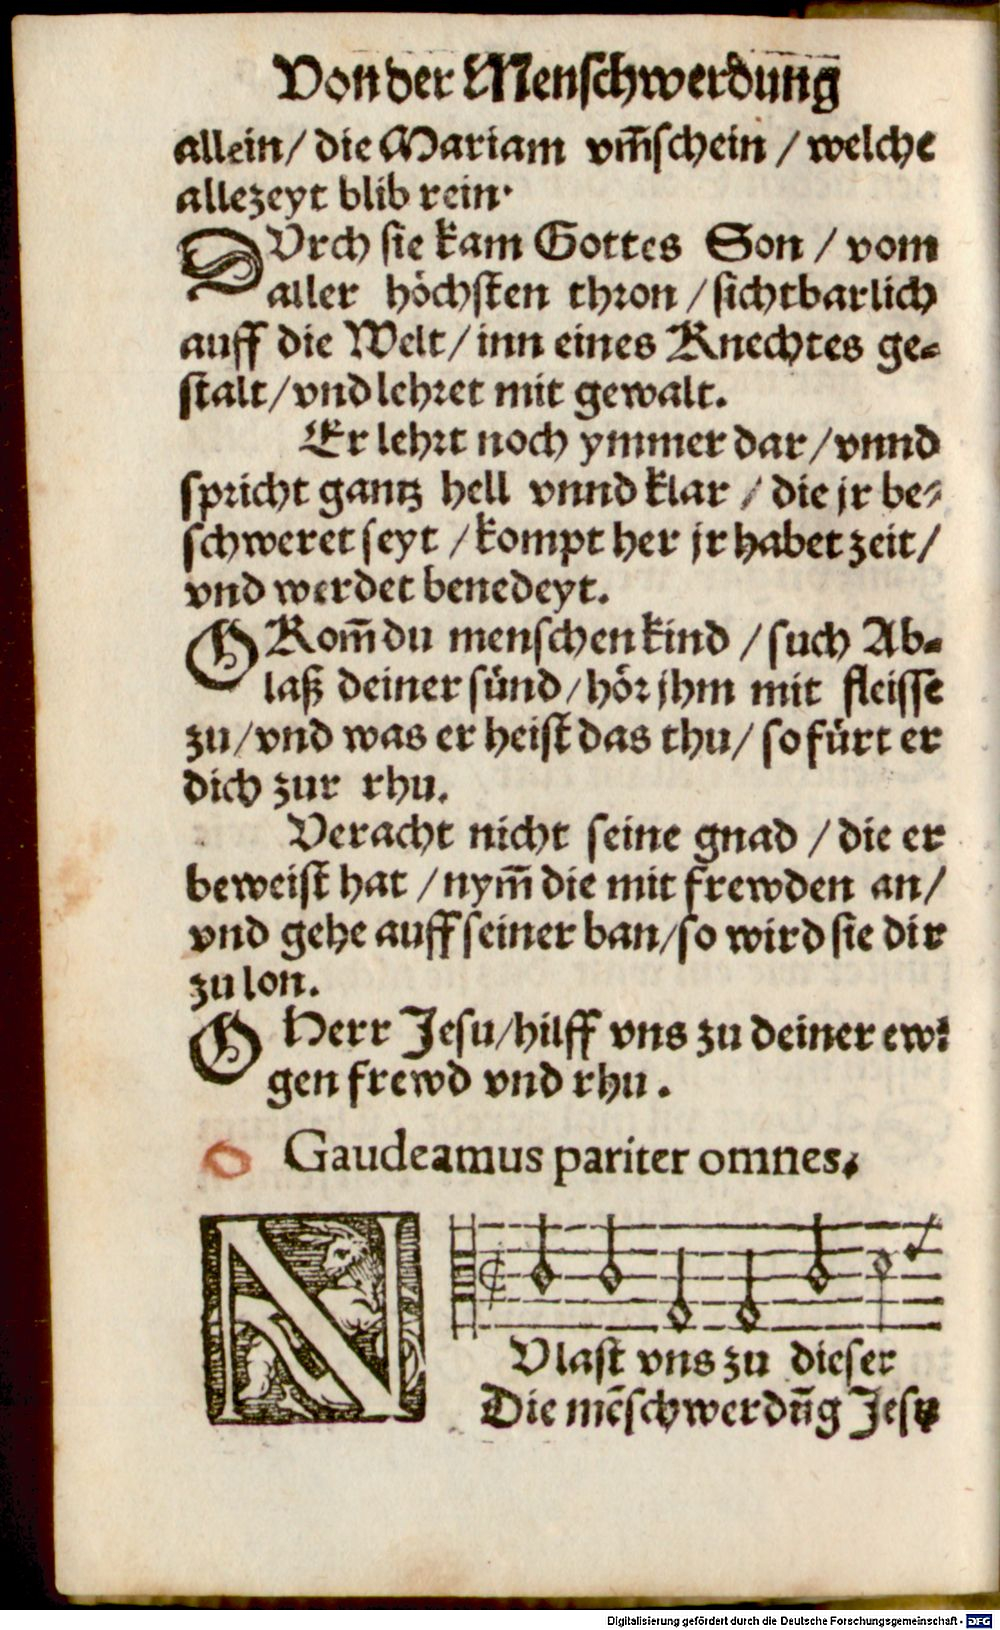 Von der Menschwerdung
allein/ die Mariam vm̃schein / welche
allezeyt blib rein.
DVrch sie kam Gottes Son / vom
aller höchsten thron / sichtbarlich
auff die Welt/ inn eines Knechtes ge⸗
stalt/ vnd lehret mit gewalt.
Er lehrt noch ymmer dar/ vnnd
spricht gantz hell vnnd klar / die jr be⸗
schweret seyt / kompt her jr habet zeit/
vnd werdet benedeyt.
O Kom̃ du menschen kind / such Ab⸗
laß deiner sünd/ hör jhm mit fleisse
zu/ vnd was er heist das thu/ so fürt er
dich zur rhu.
Veracht nicht seine gnad / die er
beweist hat / nym̃ die mit frewden an/
vnd gehe auff seiner ban/ so wird sie dir
zu lon.
O Herr Jesu/ hilff vns zu deiner ewi
gen frewd vnd rhu.
Gaudeamus pariter omnes.
NVlast vns zu dieser
Die mẽschwerdũg Jesu
Digitalisierung gefördert durch die Deutsche Forschungsgemeinschaft - DFG